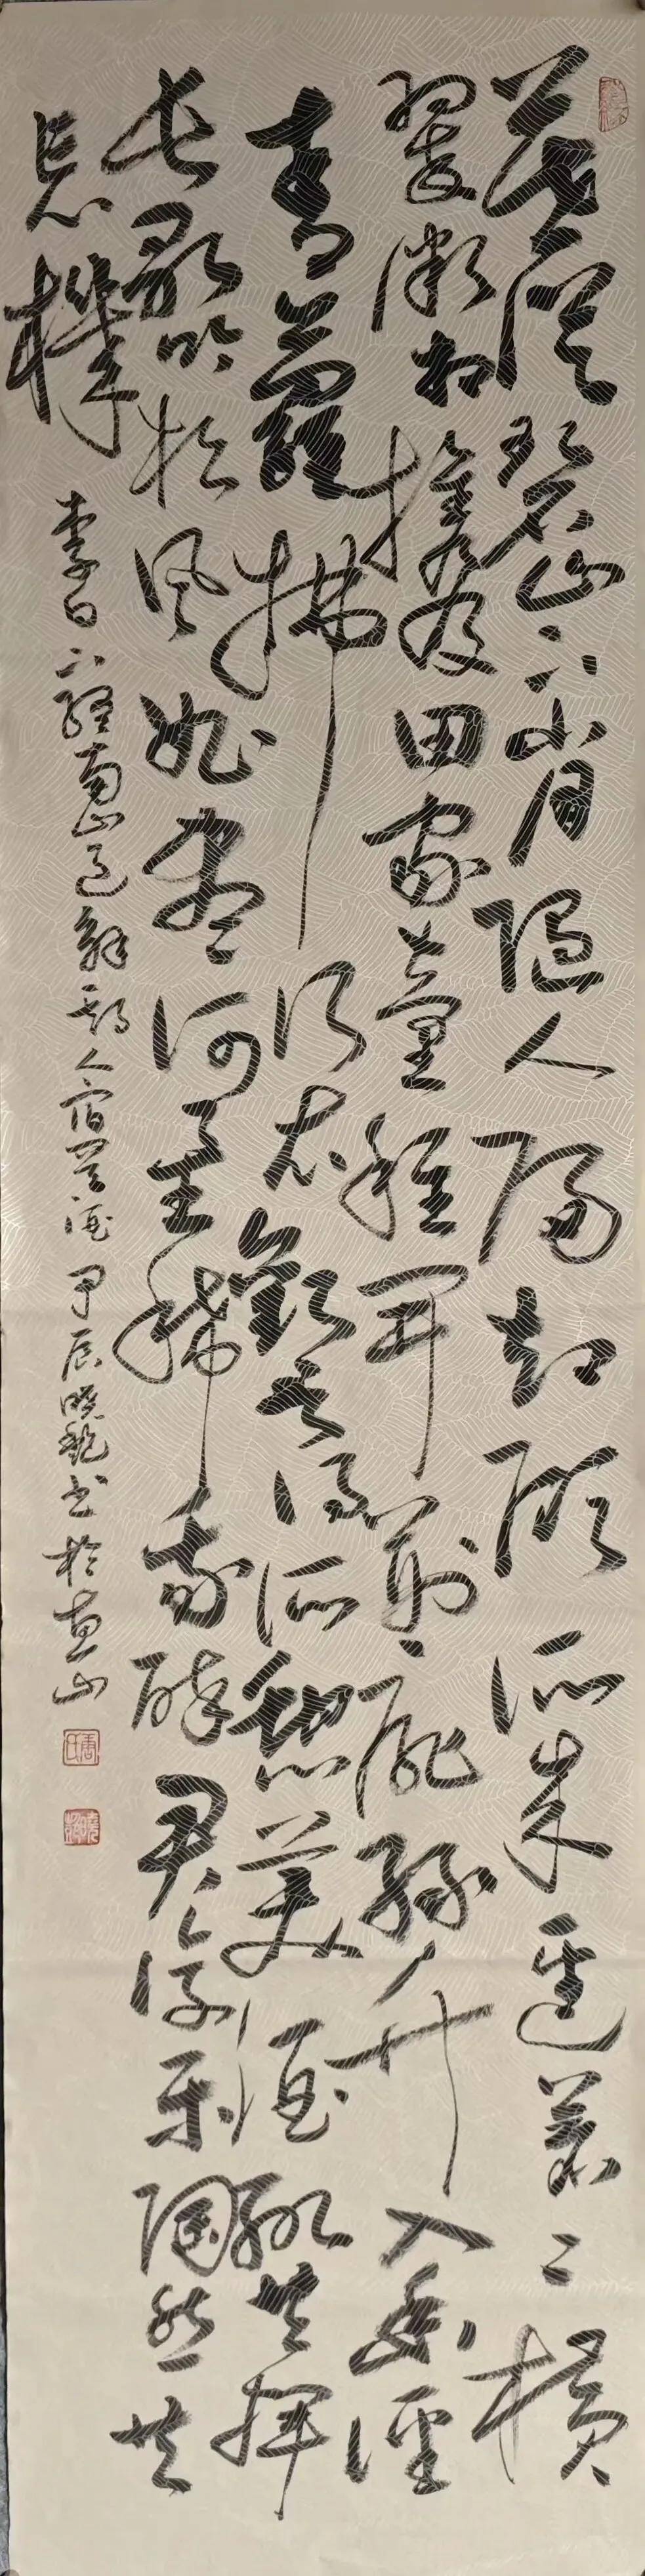 暮從碧山下山月隨人歸却顧所來徑蒼〻橫
翠微相攜及田家童稚開荊扉綠竹入幽徑
青蘿拂行衣歡言得所憩美酒聊共揮
長歌吟松風曲盡河星稀我醉君復樂陶然共
忘機
李白下終南山過斛斯人宿置酒 甲辰曉書於惠山